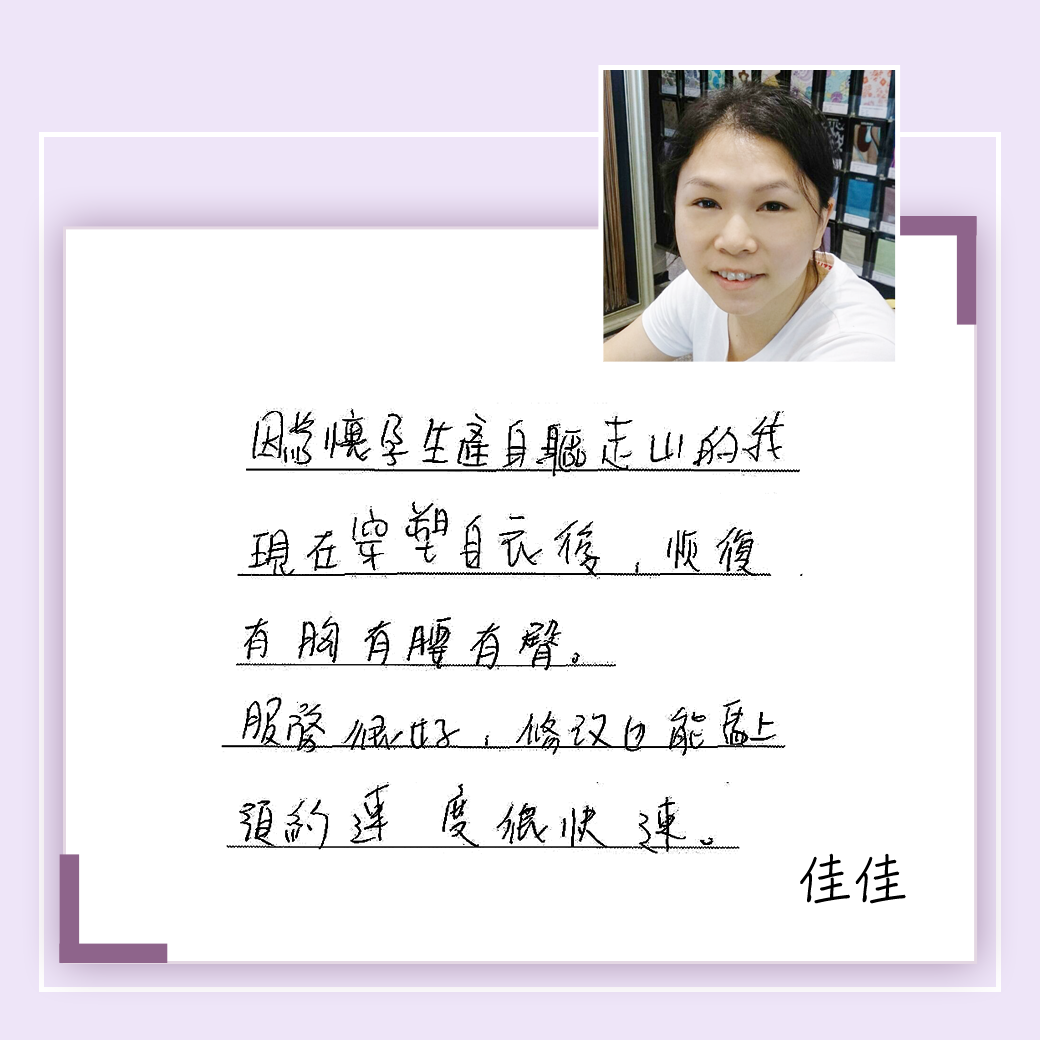 因為懷孕生產身軀走山的我
現在穿塑身衣後，恢復
有胸有腰有臀。
服務很好，修改也能馬上
預約速度很快速。
佳佳